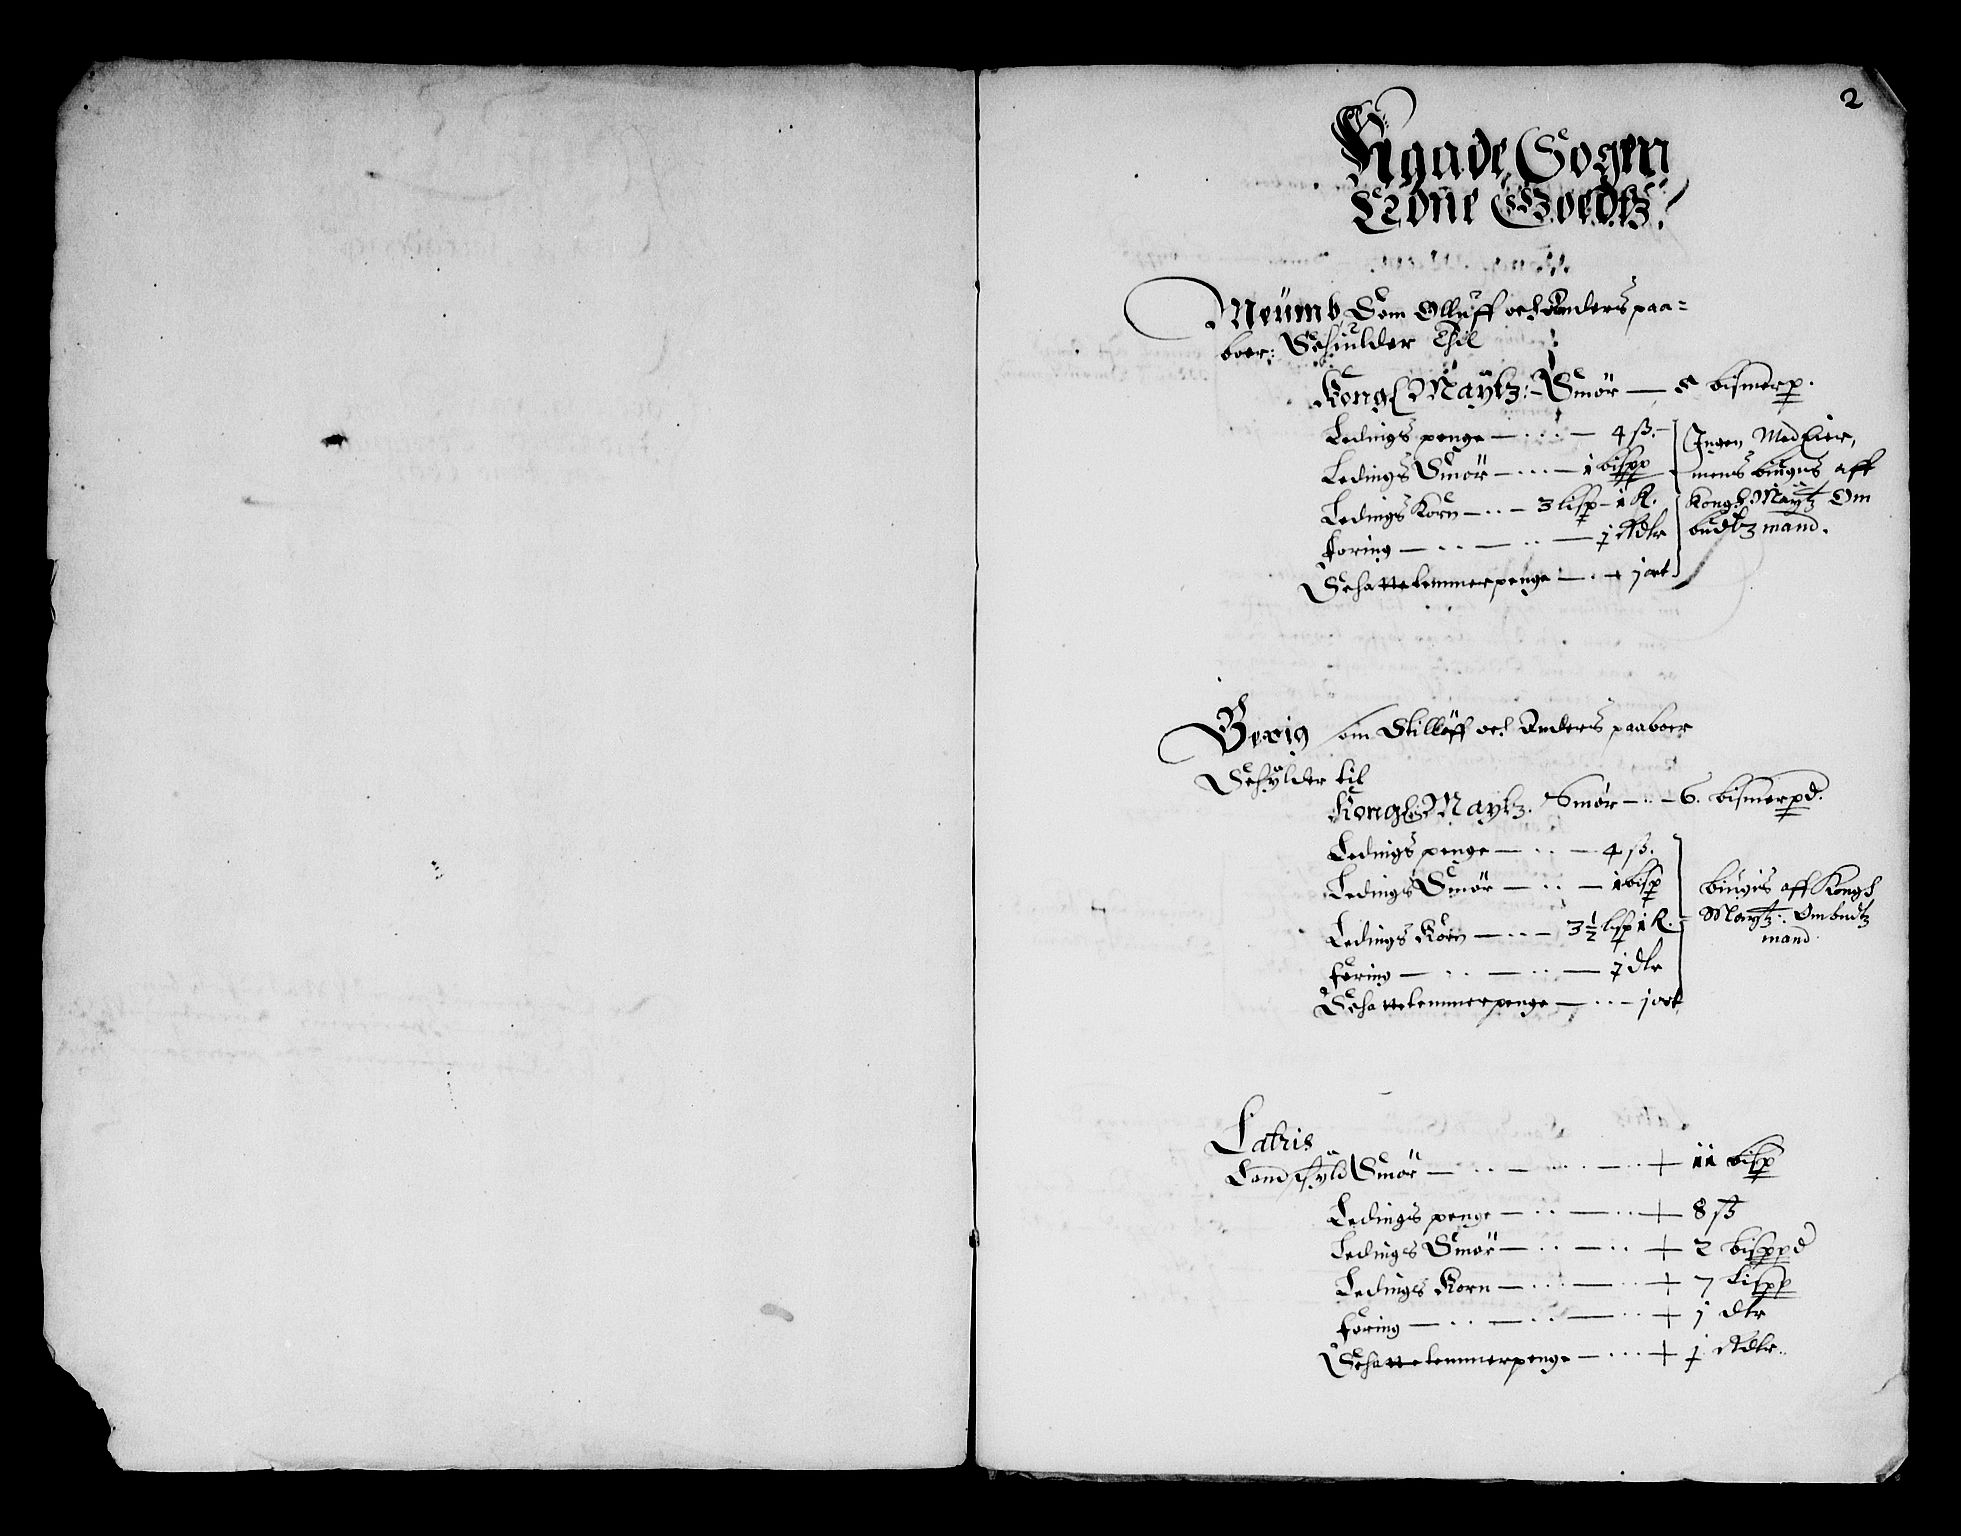 2
Agade Sogen
Crone Goedtz.
Meumb Som Olluff och Anders paa=
boer: Schiulder Thil
Kongl Maytz: Smør — 5 bismerp.
Ledings penge — 4 ß.
Ledings Smør — 1 bispp
Ledings Korn — 3 lisp — 1 K.
foring — j Rdlr
Schattelemmerpenge — j ort
Ingen Med Eier,
mens bÿges aff
Kongl: Maytz Om
budtz mand.
Berig som Stilloff och Anders paaboer
Schylder til
Kongl: Maytz. Smør — 6. bismerpd.
Ledings penge — 4 ß.
Ledings Smør — 1 bisp
Ledings Korn — 3½ lisp 1 K.
foring — j dlr
Schattelemmerpenge — j ort
bÿgis aff Kongl
Maytz: Ombudtz
mand
Latris
Landschyld Smør — 11 bisp
Ledings penge — 8 ß
Ledings Smør — 2 bisppd
Ledings Korn — 7 lispp
foring — j dlr
Schattelemmerpenge — j Rdlr.